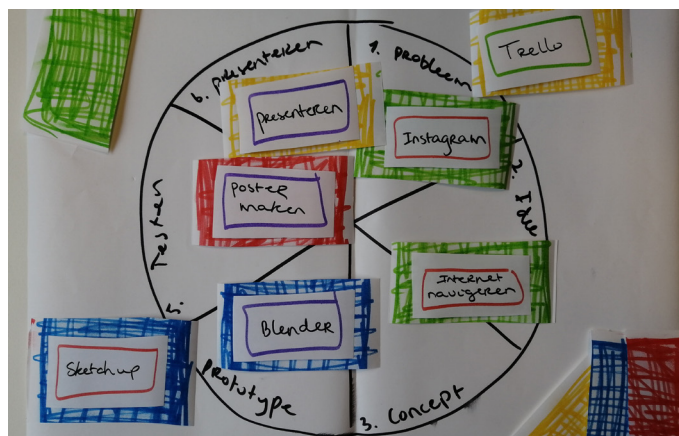 6. presenteren
1. probleem
Trello
presenteren
Instagram
2. Idee
poster
maken
Testen
5.
Internet
navigeren
Blender
Sketchup
prototype
3. Concept